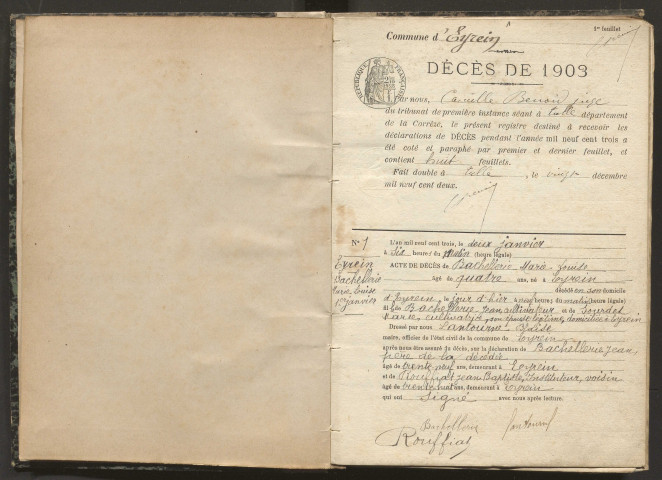 1er feuillet
Commune d'Eyrein
DÉCÈS DE 1903
RÉPUBLIQUE FRANÇAISE
Par nous, Camille Benoid juge
du tribunal de première instance séant à Tulle département
de la Corrèze, le présent registre destiné à recevoir les
déclarations de DÉCÈS pendant l'année mil neuf cent trois a
été coté et paraphé par premier et dernier feuillet, et
contient huit feuillets.
Fait double à Tulle, le vingt décembre
mil neuf cent deux.
N° 1
Eyrein
Bachellerie
Marie Louise
1er janvier
L'an mil neuf cent trois, le deux janvier
à six heures du matin (heure légale)
ACTE DE DÉCÈS de Bachellerie Marie Louise
âgé de quatre ans, né à Eyrein
décédé en son domicile
d'Eyrein, le jour d'hier à heures du matin (heure légale)
Bachellerie Jean cultivateur et de Bourdet
Marie, cultivatrice, son épouse légitime, domiciliés à Eyrein
Dressé par nous
maire, officier de l'état civil de la commune de Eyrein
après nous être assuré du décès, sur la déclaration de Bachellerie Jean,
père de la décédée
âgé de trente neuf ans, demeurant à Eyrein
et de Rouffiat Jean Baptiste, Instituteur, voisin
âgé de trente ans, demeurant à Eyrein
qui ont signé avec nous après lecture.
Bachellerie
Rouffiat